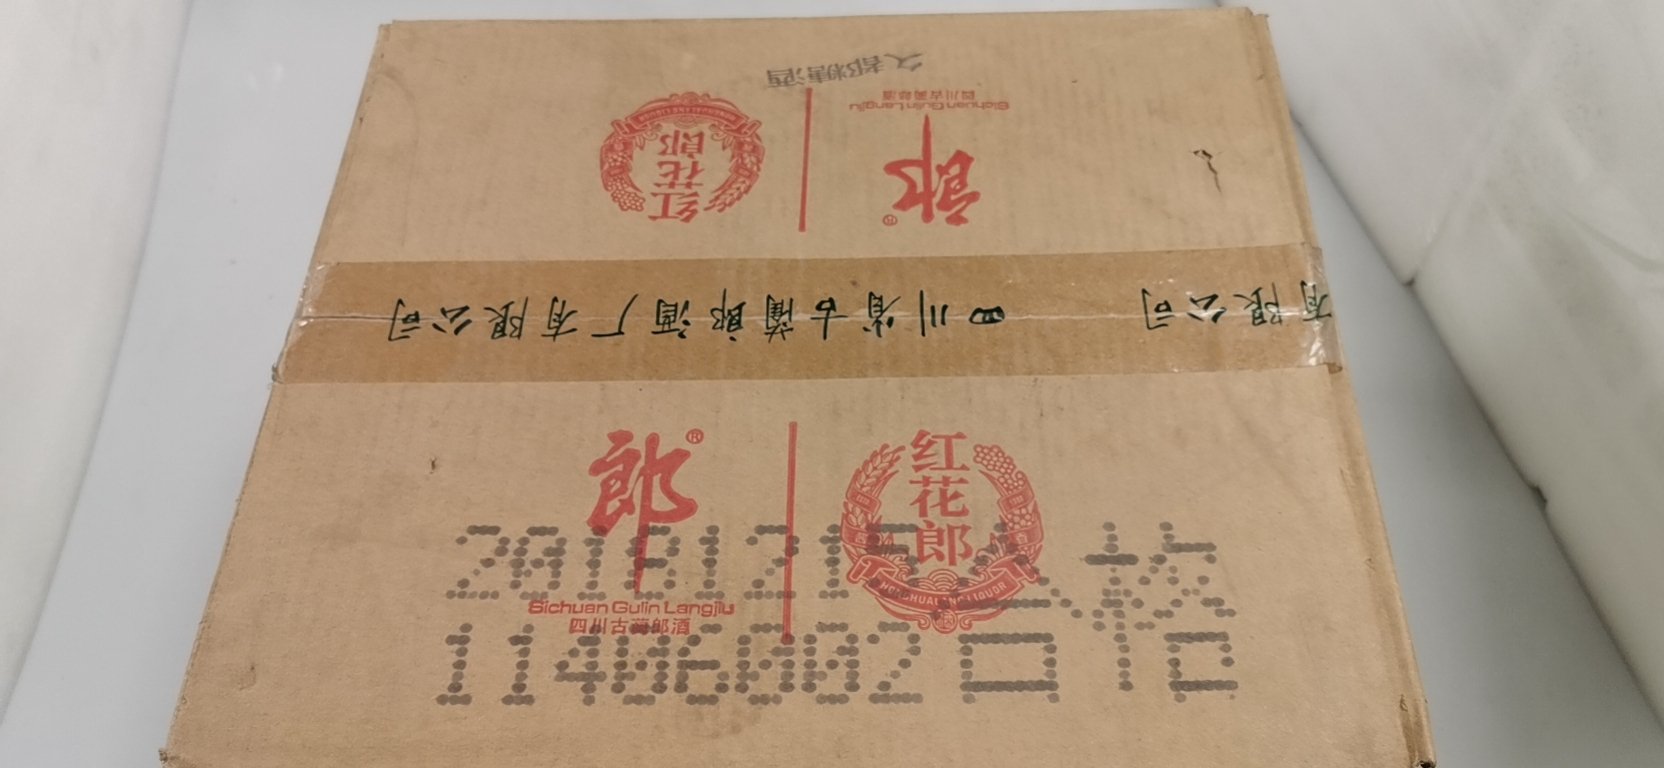 久都糖酒
郎®
Sichuan Gulin Langjiu
四川古蔺郎酒
红花郎
HONGHUALANG LIQUOR
四川省古蔺郎酒厂有限公司
有限公司
郎®
Sichuan Gulin Langjiu
四川古蔺郎酒
红花郎
HONGHUALANG LIQUOR
20181215 合格
11406002